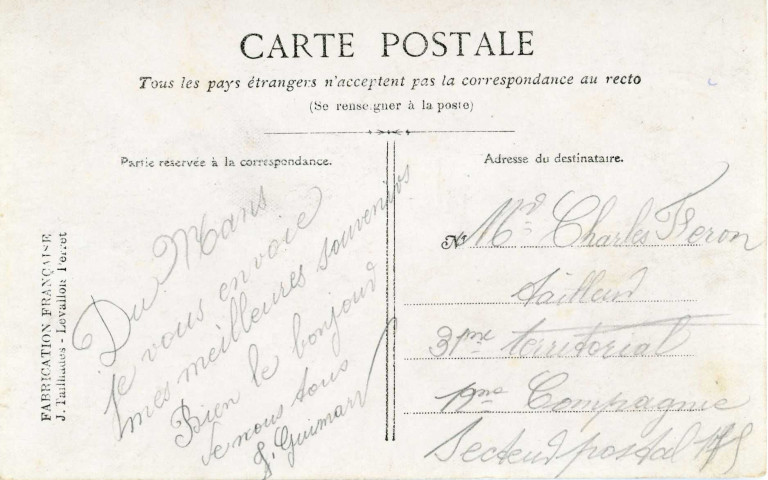 CARTE POSTALE
Tous les pays étrangers n'acceptent pas la correspondance au recto
(Se renseigner à la poste)
Partie réservée à la correspondance.
Adresse du destinataire.
FABRICATION FRANÇAISE
J. Tailhades - Levallois Perret
Du Mans
je vous envoie
mes meilleures souvenirs
Bien le bonjour
de nous tous
Guimard
M Charles Feron
31me territorial
Compagnie
Secteur postal